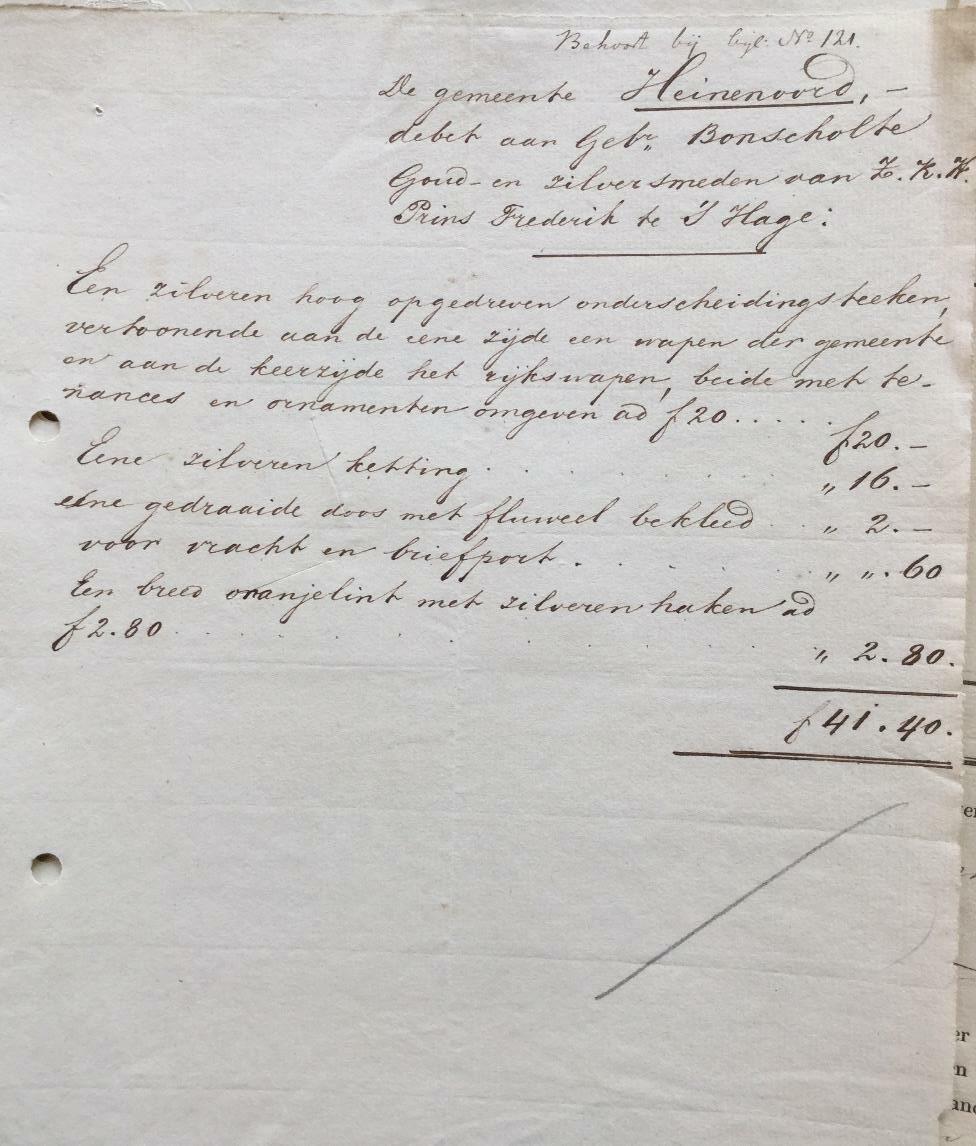 Behoort bij bijl: No 121.
De gemeente Heinenoord, -
debet aan Gebr„ Bonscholte
Goud- en zilversmeden van Z. K. H.
Prins Frederik te 'S Hage:
Een zilveren hoog opgedreven onderscheidingsteeken,
vertoonende aan de eene zijde een wapen der gemeente
en aan de keerzijde het rijkswapen, beide met te-
nances en ornamenten omgeven ad f 20..... f 20.-
Eene zilveren ketting . . . . . „ 16.-
eene gedraaide doos met fluweel bekleed . . „ 2.-
voor vracht en briefport . . . . . „ „.60
Een breed oranjelint met zilveren haken ad
f 2.80 . . . . . „ 2.80.
f 41.40.